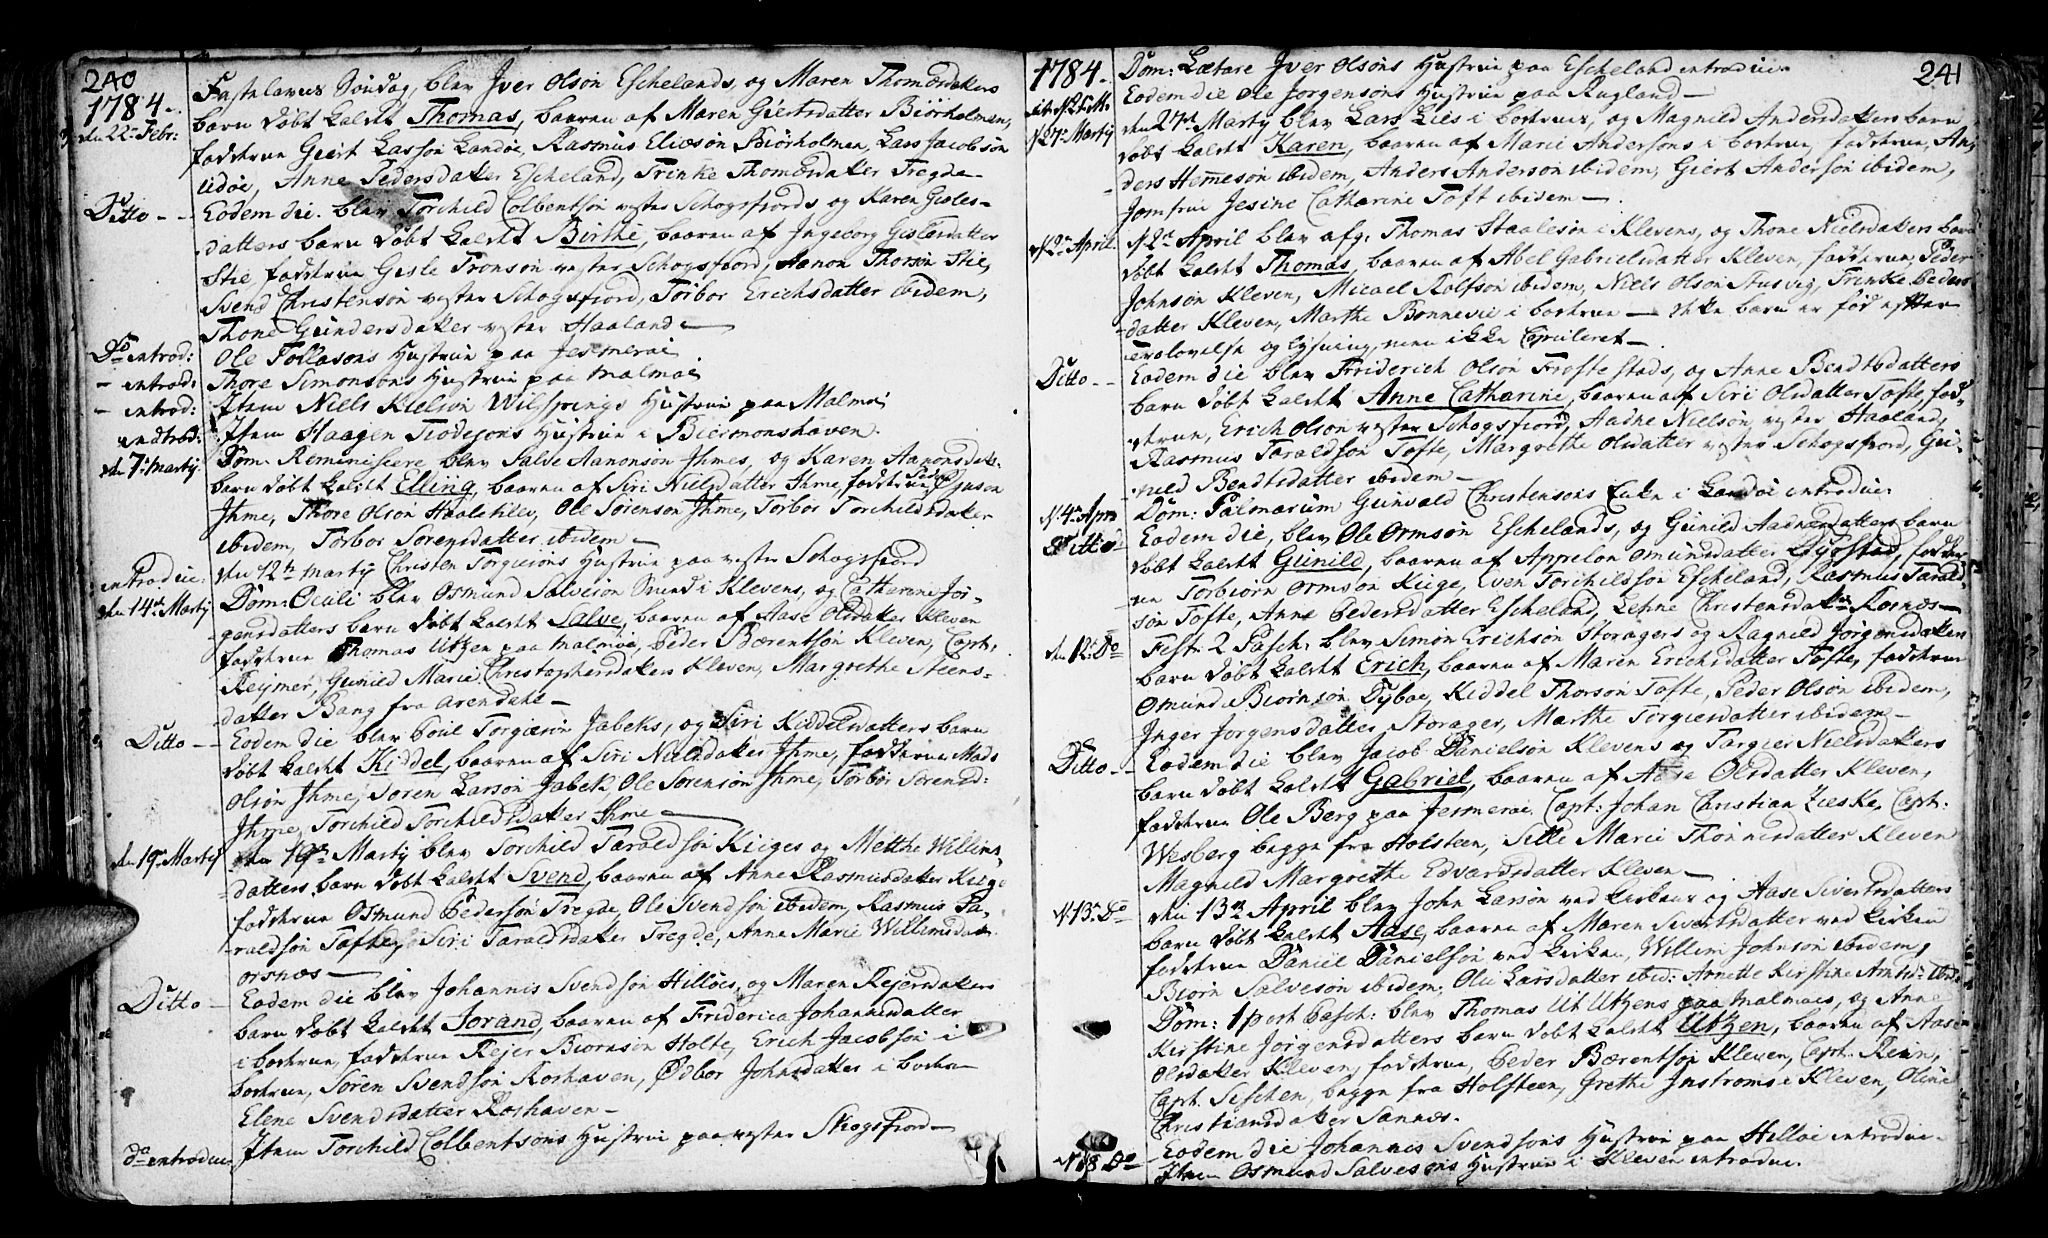 240
1784.
den 22 Febr:
Fastelavns Søndag, blev Iver Olsøn Eschelands, og Maren Thomædatters
barn døbt kaldt Thomas, baaren af Maren Giertsdatter Biørholmen,
fadderne Giert Lassøn Landøe, Rasmus Eliesøn Biørholmen, Lars Jacobsøn
Udøe, Anne Pedersdatter Escheland, Trinke Thomædatter Tregde
Ditto - -
Eodem die. blev Torchild Colbentsøn vester Schogsfiords og Karen Gisles-
datters barn døbt kaldt Birthe, baaren af Ingeborg Gislesdatter
Stie, fadderne Gisle Tronsøn vester Schogsfiord, Aanon Thorsøn Stie,
Svend Christensøn vester Schogsfiord, Torbor Erichsdatter ibidem,
Thone Gundersdatter vester Haaland
Do introd:
Ole Tollasøns Hustrue paa Jesmerøe
- introd:
Thore Simonsøns Hustrue paa Malmøe
- introd:
Item Niels Kielsøn Wilsprings Hustrue paa Malmøe
indtrod:
Item Haagen Tiodesøns Hustrue i Biermonshaven.
den 7de Martij
Dom: Reminiscere blev Salve Aanonsøn Ihmes, og Karen Aanonsdatt:
barn døbt kaldt Elling, baaren af Siri Nielsdatter Ihme, fadderne
Ihme, Thore Olsøn Haalskilen, Ole Sørensøn Ihme, Torbor Torchildsdatter
ibidem, Torbor Sørensdatter ibidem
introduc:
den 12te Martij Christen Torgiersøns Hustrue paa vester Schogsfiord
den 14de Martij
Dom: Oculi blev Osmund Salvesøn Smed i Klevens, og Catharine Jør-
gensdatters barn døbt kaldt Salve, baaren af Aase Olsdatter Kleven
fadderne Thomas Utzen paa Malmøe, Peder Bærentsøn Kleven, Capt:
Reijmer, Gunild Marie Christophersdatter Kleven, Margrethe Steens-
datter Bang fra Arendahl
Ditto - -
Eodem die blev Poul Torgiersøn Jabeks, og Siri Kiddelsdatters barn
døbt kaldt Kiddel, baaren af Siri Nielsdatter Ihme, fadderne Mads
Olsøn Ihme, Søren Larsøn Jabek, Ole Sørensøn Ihme, Torbor Sørensd:
Ihme, Torchild Torchildsdatter Ihme
den 19de Martij
den 19de Martij blev Torchild Taraldsøn Kiiges og Metthe Willims-
datters barn døbt kaldt Svend, baaren af Anne Rasmusdatter Kiige
fadderne Osmund Pedersøn Tregde, Ole Svendsøn ibidem, Rasmus Ta-
raldsøn Tofte, Siri Taraldsdatter Tregde, Anne Marie Willimsdat.
Ditto -
Eodem die blev Johannis Svendsøn Hilløes, og Maren Rejersdatters
barn døbt kaldt Jorand, baaren af Friderica Johannisdatter
i boehrne, fadderne Rejer Biørnsøn Holte, Erich Jacobsøn i
boehrne, Søren Svendsøn Roshaven, Ødbor Johnsdatter i boehrne
Elene Svendsdatter Roshaven
do introduc.
Item Torchild Colbentsøns Hustrue paa vester Skogsfiord
241
1784.
Dom: Lætare Iver Olsøns Hustrue paa Escheland introduc.
Eodem die Ole Jørgensøns Hustrue paa Rugland
d. 27de Martij
den 27de Martij blev Lars Lies i boehrne, og Magnild Andersdatters barn
døbt kaldt Karen, baaren af Marie Andersøns i boehrne, fadderne, An-
ders Hemmesøn ibidem, Anders Andersøn ibidem, Giert Andersøn ibidem,
Jomfrue Jesine Catharine Toft ibidem
d. 2den April
d. 2den April blev afg: Thomas Staalesøn i Klevens, og Thone Nielsdatters barn
døbt kaldt Thomas, baaren af Abel Gabrielsdatter Kleven, fadderne, Peder
Johnsøn Kleven, Micael Rolfsøn ibidem, Niels Olsøn Ausvig, Trinke Peders-
datter Kleven, Marthe Bonnevie i boehrne - dette barn er fød efter
Trolovelse og Lysning, men ikke Copuleret
Ditto - -
Eodem die blev Friderich Olsøn Froftestads, og Anne Bendtsdatters
barn døbt kaldt Anne Catharine, baaren af Siri Olsdatter Tofte, fad-
derne, Erich Olsøn vester Schogsfiord, Aadne Nielsøn, vester Haaland,
Rasmus Taraldsøn Tofte, Margrethe Olsdatter vester Schogsfiord, Gu-
nild Bendtsdatter ibidem
d. 4de April
Dom: Palmarum Gunvald Christensøns Enke i Landøe introduc:
Ditto
Eodem die, blev Ole Ormsøn Eschelands, og Gunild Aadnesdatters barn
døbt kaldt Gunild, baaren af Appelon Omundsdatter Løgestad, fadder-
ne Torbiørn Ormsøn Kiige, Even Torchildsøn Escheland, Rasmus Tarald-
søn Tofte, Anne Pedersdatter Escheland, Lehne Christensdatter Rosnæs
den 12te Do
Fest: 2 Pasch: blev Simon Erichsøn Storagers og Ragnild Jørgensdatters
barn døbt kaldt Erich, baaren af Maren Erichsdatter Tofte, fadderne
Omund Biørnsøn Dyboe, Kiddel Thorsøn Tofte, Peder Olsøn ibidem,
Inger Jørgensdatter Storager, Marthe Torgiersdatter ibidem
Ditto - -
Eodem die blev Jacob Danielsøn Klevens og Targier Nielsdatters
barn døbt kaldt Gabriel, baaren af Aase Olsdatter Kleven,
fadderne Ole Berg paa Jesmerøe, Capt: Johan Christian Zieske, Capt:
Wesberg begge fra Holsteen, Sille Marie Thønnesdatter Kleven
Magnild Margrethe Edvardsdatter Kleven
d. 13de Do
den 13de April blev John Larsøn ved Kirken og Aase Sivertsdatters
barn døbt kaldt Aase, baaren af Maren Sivertsdatter ved Kirken
fadderne Daniel Danielsøn ved Kirken, Willem Johnsøn ibidem,
Biørn Salvesøn ibidem, Ole Larsdatter ibid: Annette Kirstine
Dom: 1 post Pasch: blev Thomas Ut Utzens paa Malmøes, og Anne
Kirstine Jørgensdatters barn døbt kaldt Utzen, baaren af Aase
Olsdatter Kleven, fadderne Peder Bærentsøn Kleven, Capt. Rein,
Capt. Seschen, begge fra Holsteen, Grethe Instroms i Kleven, Oline
Christiansdatter Sannæs.
d. 18 Do
Eodem die Johannis Svendsøns Hustrue paa Hilløe introduc.
Item Osmund Salvesøns Hustrue i Kleven introduc.